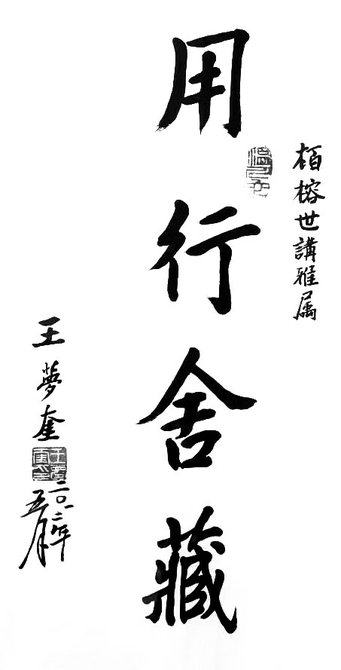 栢榕世講雅属
用行舍藏
王夢奎
二〇一二年
五月